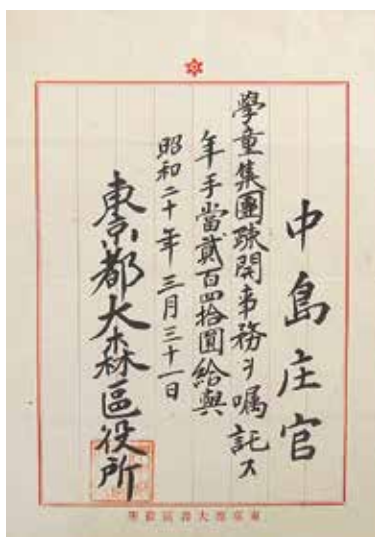 中島庄官
學童集團疎開事務ヲ囑託ス
年手當貳百四拾圓給與
昭和二十年三月三十一日
東京都大森區役所